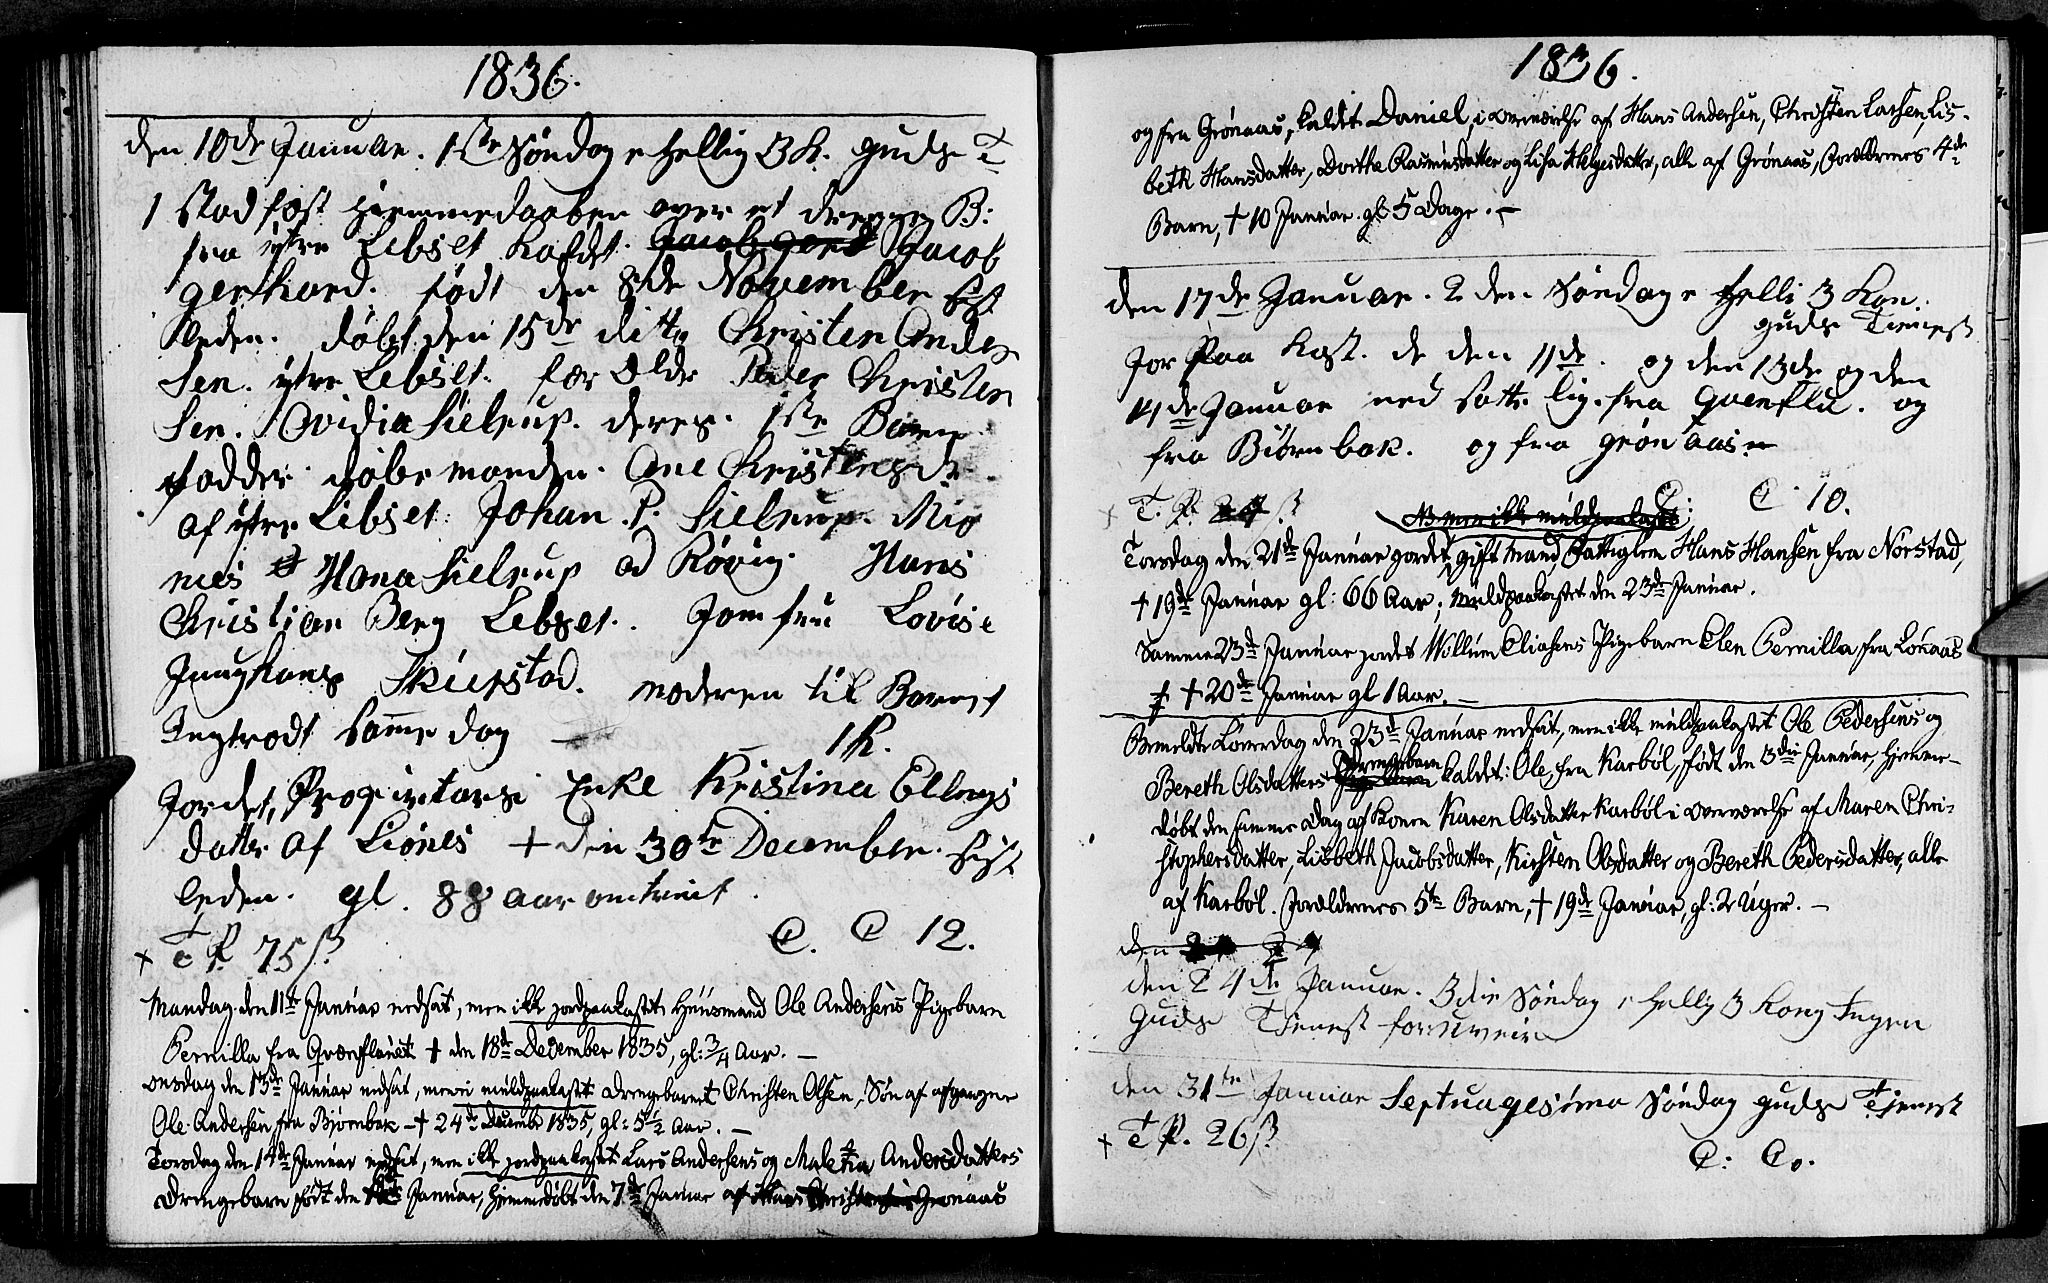 1836.
den 10de Januar. 1ste Søndag e Hellig 3 K. guds T
1 Stadfæst hiemmedaaben over et drenge B:
fra ytre Lebset kaldet Jacob gerd Jacob
gerhard. født den 8de November sist
leden. døbt den 15de ditto Christen Ander
sen. ytre Lebset. forældre Peder Christen
sen. Ovidia Sielrup. deres 1ste Barn
fadder døbemanden. Ane Christensd.
af ytre Lebset. Johan. P. Sielrup.
Hana Sielrup ad Røvig. Hans
Christian Berg Lebset. Jomfru Lovise
Junghans Skierstad. moderen til Barnet
Ingtrødt samme dag 1 K.
Jordet, Proprietærs Enke Kristina Ellings
datter af Liønes + den 30te December. sist
leden. gl. 88 aar omtrent.
+ T P. 75 ß. C. C 12.
Mandag den 11te Januar nedsat, men ikke jordpaakastet Huusmand Ole Andersens Pigebarn
Pernilla fra Qvænflauet + den 18de December 1835, gl: 3/4 Aar. —
Onsdag den 13de Januar nedsat, men ei muldpaakastet Drengebarnet Christen Olsen, Søn af
Ole Andersen fra Bjørnbak — + 24de Decembr 1835, gl: 5 1/2 Aar. —
Torsdag den 14de Januar nedsat, men ikke jordpaakastet Lars Andersens og Maletta Andersdatters
Drengebarn født den Januar, hjemmedøbt den 7de Januar af Hans Christensen Grønaas
1836.
og fra Grønaas, kaldet Daniel, i overværelse af Hans Andersen, Christen Larsen, Lis-
beth Hansdatter, Dorthe Rasmusdatter og Lisa Helgesdatter, alle af Grønaas, Forældrenes 4de
Barn, + 10 Januar. gl: 5 Dage. —
den 17de Januar. 2den Søndag e Helli 3 Kon.
guds Tienest
Jor Paa Kast. de den 11de. og den 13de og den
14de Januar ned satte lig. fra Qvenflu. og
fra Biørnbak. og fra grønaasen
+ T. P. 24 ß. C: C 10.
NB men ikke muldpaakastet
Torsdag den 21de Januar jordet gift Mand Fattiglem Hans Hansen fra Norstad,
+ 19de Januar gl: 66 Aar; muldpaakastet den 23de Januar.
Samme 23de Januar jordet Willum Eliasens Pigebarn Elen Pernilla fra Lønaas
+ 20de Januar gl 1 Aar. —
Bemeldte Løverdag den 23de Januar nedsat, men ikke muldpaakastet Ole Pedersens og
Drengebarn
Bereth Olsdatters Pigebarn kaldet: Ole, fra Karbøl, født den 3die Januar, hjemme-
døbt den samme Dag af Konen Karen Olsdatter Karbøl i overværelse af Maren Chri-
stophersdatter, Lisbeth Jacobsdatter, Kirsten Olsdatter og Bereth Pedersdatter, alle
af Karbøl. Forældrenes 5te Barn, + 19de Januar, gl: 2 Uger. —
den 24
den 24de Januar. 3die Søndag e Hellig 3 Kong Ingen
Guds Tienest for uveir
den 31te Januar Septuagesima Søndag guds Tienest
+ T P. 26 ß. C: Co.